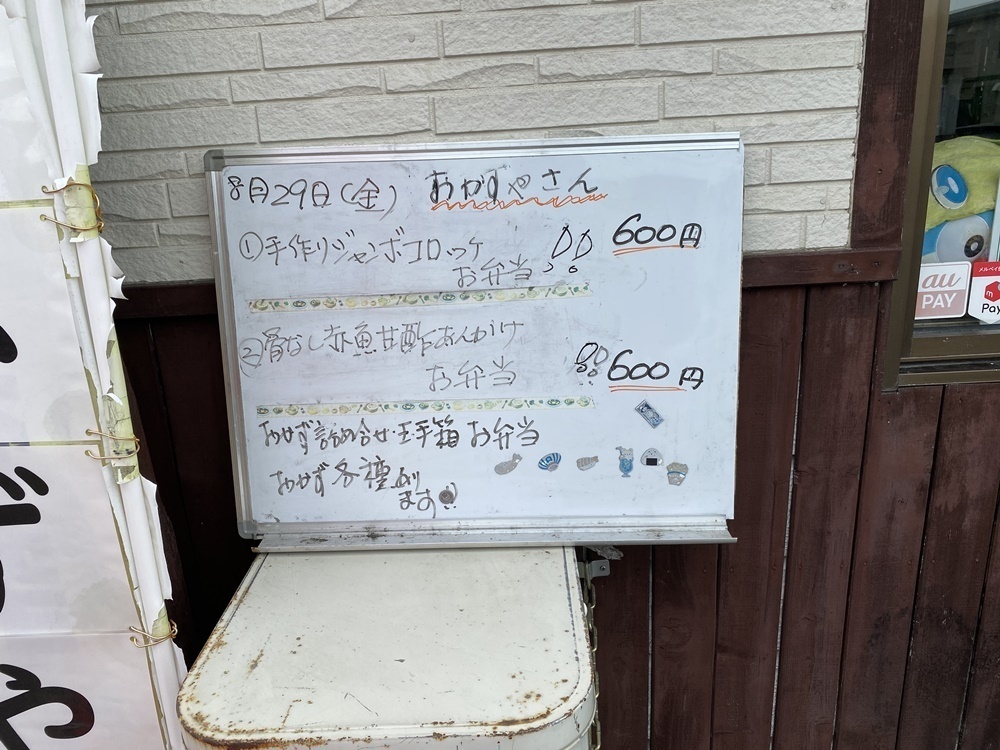 8月29日(金) おかずやさん
①手作りジャンボコロッケ
お弁当
600円
②骨なし赤魚甘酢あんかけ
お弁当
600円
おかず詰め合せ・玉手箱 お弁当
おかず各種あり
ます
au
PAY
メルペイ
Pay